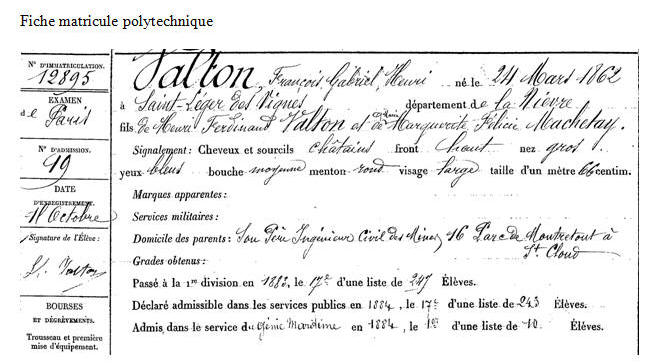 Fiche matricule polytechnique
N° D'IMMATRICULATION.
12895
EXAMEN
de Paris
N° D'ADMISSION.
99
DATE
D'ENREGISTREMENT.
Octobre
Signature de l'Élève :
H. Valton
BOURSES
ET DÉGRÈVEMENTS.
Trousseau et première
mise d'équipement.
Valton, François Gabriel Henri né le 24 Mars 1862
à Saint-Léger des Vignes département de la Nièvre
fils de Henri Ferdinand Valton et de Marguerite Félicie Machetay.
Signalement: Cheveux et sourcils châtains front haut nez gros
yeux bleus bouche moyenne menton rond visage large taille d'un mètre 66 centim.
Marques apparentes:
Services militaires:
Domicile des parents: Son Père Ingénieur Civil des Mines, 16 Parc de Montretout à
St. Cloud
Grades obtenus:
Passé à la 1re division en 1883, le 17e d'une liste de 247 Élèves.
Déclaré admissible dans les services publics en 1884, le 17e d'une liste de 243 Élèves.
Admis dans le service du Génie Maritime en 1884, le 1er d'une liste de 10 Élèves.